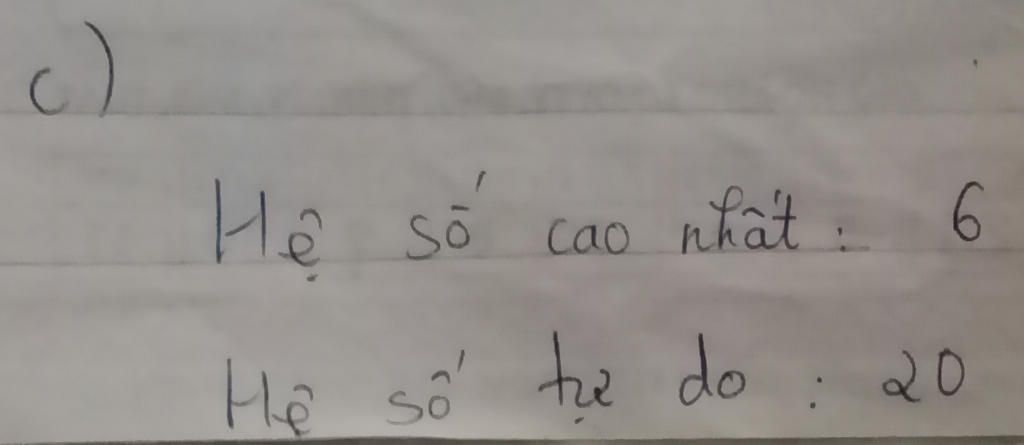 c)
Hệ số cao nhất : 6
Hệ số tự do : 20